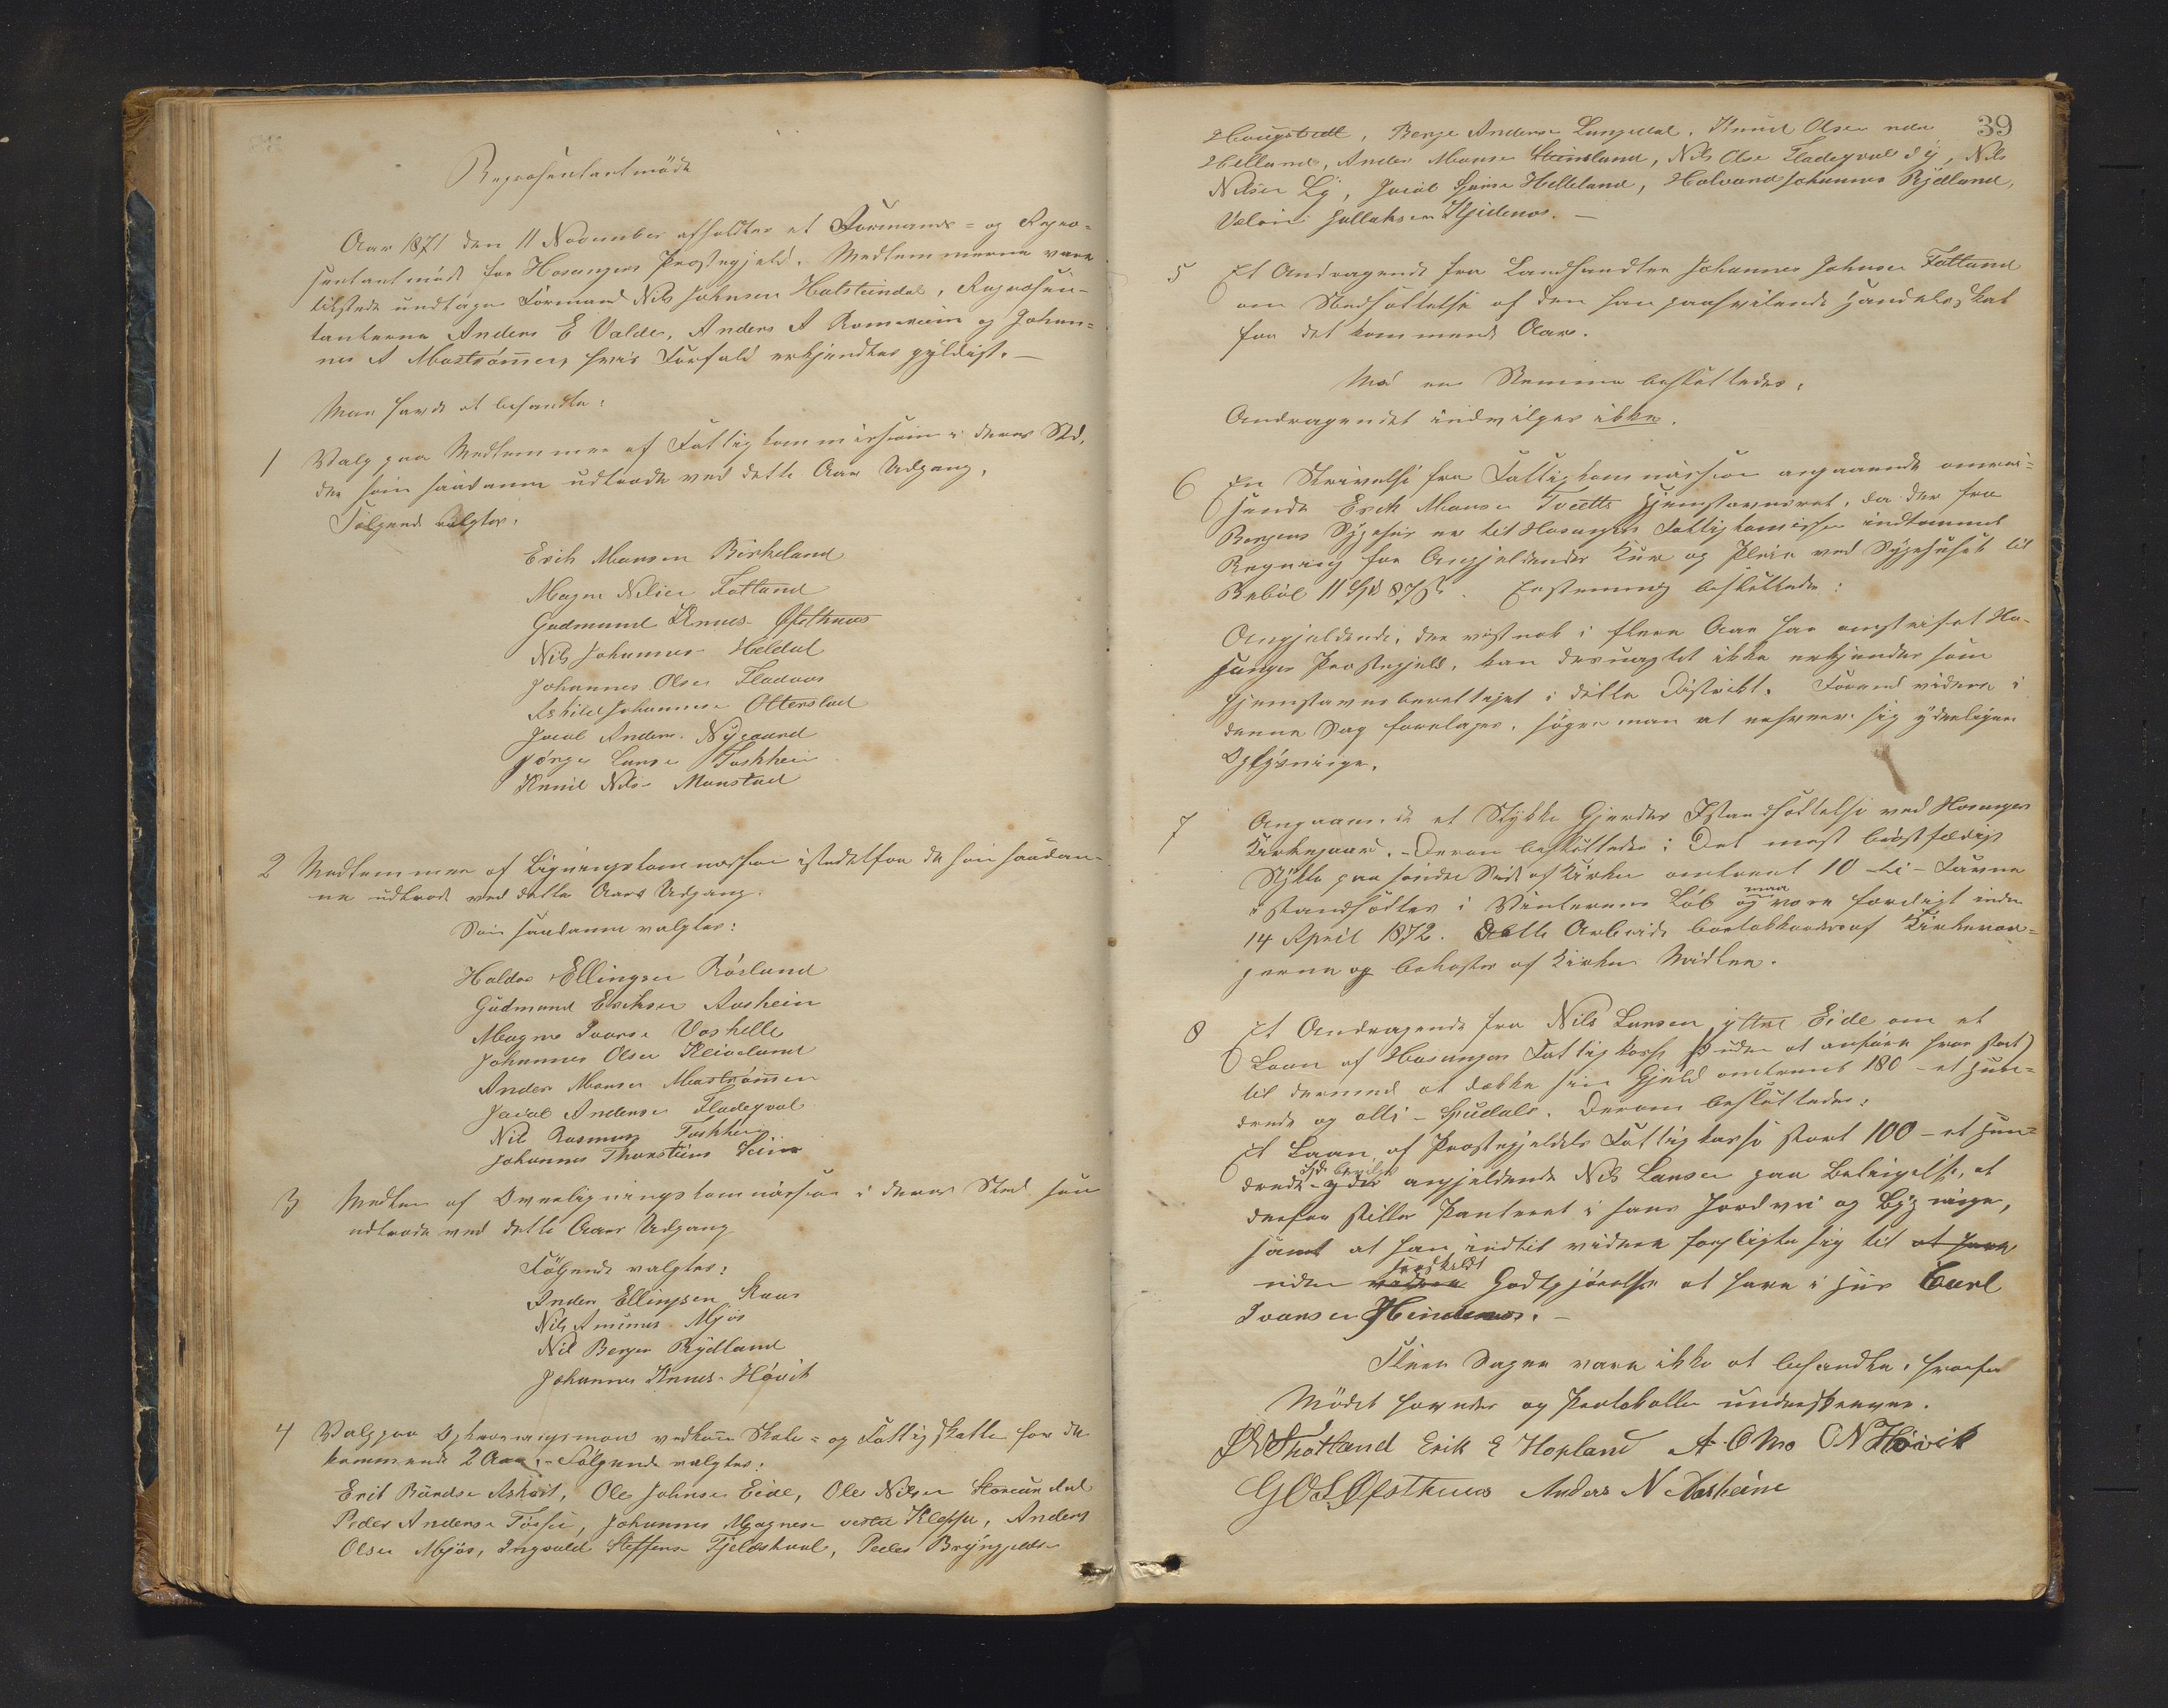 Repræsentantmøde
Aar 1871 den 11 November afholdtes et Formands- og Repræ-
sentantmøde for Hosangers Præstegjeld. Medlemmerne vare
tilstede undtagen Formand Nils Johnsen Hatsteindal, Repræsen-
tanterne Anders E Valde, Anders A Romereim og Johan-
nes A Mostrømmen, hvis Forfald erkjendtes gyldigt.—
Man havde at behandle:
1 Valg paa Medlemmer af Fattigkommissionen i deres Sted,
der som saadanne udtræde ved dette Aars Udgang.
Følgende valgtes:
Erik Monsen Birkeland
Magne Nilsen Fotland
Gudmund Knuds. Øfsthuus
Nils Johannes. Heldal
Johannes Olsen Fladaas
Askild Johannesen Otterstad
Jacob Anders. Nygaard
Børge Larsen Toskhein
Knud Nils. Monstad
2 Medlemmer af Ligningskommissionen istedetfor de som saadan-
ne udtræde ved dette Aars Udgang.
Som saadanne valgtes:
Haldor Ellingsen Røsland
Gudmund Eriksen Aashein
Magne Ivarsen Voshelle
Johannes Olsen Kleiveland
Anders Monsen Mostrømmen
Jacob Andersen Fladegval
Nils Rasmus. Toskhein
Johannes Thorsteins. Seim
3 Medlem. af Overligningskommissionen i deres Sted som
udtræde ved dette Aars Udgang
Følgende valgtes:
Anders Ellingsen Kaas
Nils Amunds. Mjøs
Nils Berges. Rydland
Johannes Knuds. Høvik
4 Valg paa Opkrævningsmænd vedkom. Skole- og Fattigskatten for de
kommende 2 Aar.— Følgende valgtes:
Erik Baardsen Askvit, Ole Johnsen Eide, Ole Nilsen
Peder Andersen Fosse, Johannes Magnesen vestre Kleppe, Anders
Olsen Mjøs, Ingvald Steffens. Tjeldstvol, Peder Brynjulvs.
39
Hougstvedt, Berge Andersen Langedal, Knud Olsen nedre
Helland, Anders Monsen Steinsland, Nils Olsen Fladegval, Nils
Nilsen Ly, Jacob Helleland, Halvard Johannes. Rydland,
Hjelmaas.—
5 Et Andragende fra Landhandler Johannes Johnsen Fotland
om Nedsættelse af den ham paahvilende Handelsskat
for det kommende Aar.
Mod en Stemme besluttedes:
Andragendet indvilges ikke.
6 En Skrivelse fra Fattigkommissionen angaaende omrei-
sende Erik Monsen Tveits Hjemstavnsret, da der fra
Bergens Sygehus er til Hosangers Fattigkommission indkommet
Regning for Angjeldendes Kur og Pleie ved Sygehuset til
Beløb 11 Spd 87 s. Enstemmig besluttedes:
Angjeldende, der vistnok i flere Aar har omstreifet Ho-
sangers Præstegjeld, kan desuagtet ikke erkjendes som
hjemstavnsberettiget i dette Distrikt. Forend videre i
denne Sag foretages, søger man at erhverve sig yderligere
Oplysninger.
7 Angaaende et Stykke Gjerdes Istandsættelse ved Hosanger
Kirkegaard.— Derom besluttedes: Det mest brøstfældige
Stykke paa søndre Side af Kirken omtrent 10 – ti – Favne
istandsættes i Vinterens Løb og maa være færdigt inden
14 April 1872. Dette Arbeide bortakkorderes af Kirkevær-
gerne og bekostes af Kirkens Midler.
8 Et Andragende fra Nils Larsen yttre Eide om et
Laan af Hosangers Fattigkasse (uden at anføre hvor stort)
til dermed at dække sin Gjeld omtrent 180 – et hun-
drede og otti – Spdlr. Derom besluttedes:
Et Laan af Præstegjeldets Fattigkasse stort 100 – et hun-
drede – Spd. bevilges angjeldende Nils Larsen paa Betingelse, at
derfor stilles Panteret i hans Jordvei og Bygninger,
samt at han indtil videre forpligter sig til at have
uden særskildt Godtgjørelse at have i Hus Carl
Ivarsen.—
Flere Sager vare ikke at behandle, hvorfor
Mødet hævedes og Protokollen underskreves.
Skotland Erik E Hopland A O Mo O N Høvik
G O S Øpsthuus Anders N Aasheim